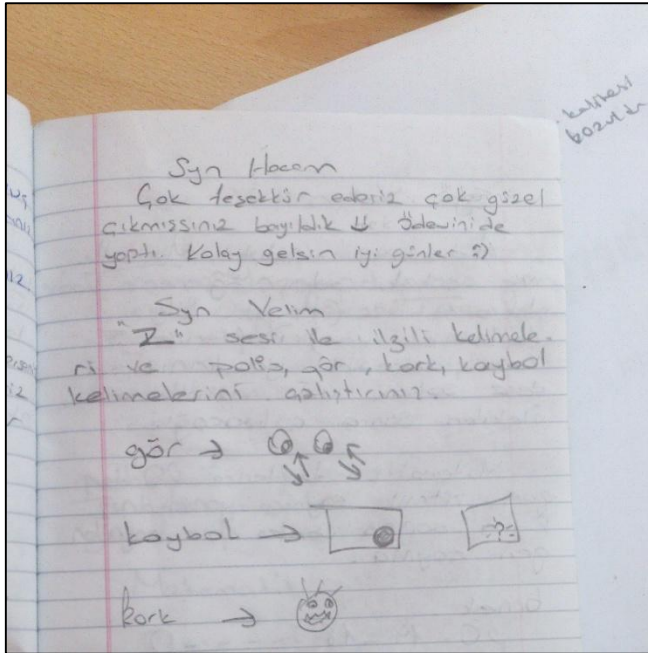 kalitesi
bozuldu
Syn Hocam
Çok teşekkür ederiz çok güzel
çıkmıssınız bayıldık Ödevinide
yaptı. Kolay gelsin iyi günler :)
Syn Velim
"Z" sesi ile ilgili kelimele-
ri ve polis, gör, kork, kaybol
kelimelerini çalıştırınız.
gör →
kaybol → ?
kork →